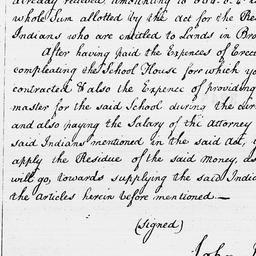 already received amounting to
whole Sum allotted by the act for the
Indians who are entitled to Lands in
After having paid the Expences of
compleating the School House for which
contracted & also the Expence of providing
master for the said School during the
and also paying the Salary of the Attorney
said Indians mentioned in the said act,
apply the Residue of the said Money, as
will go, towards supplying the said
the articles herein before mentioned —
(Signed)
John